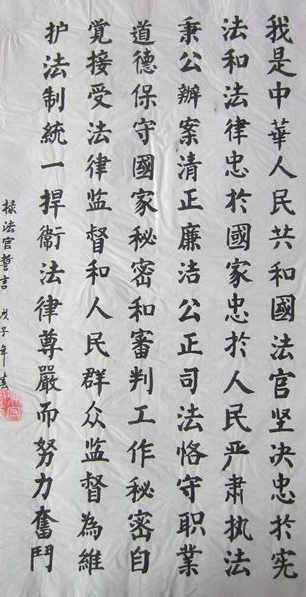 我是中華人民共和國法官坚决忠於宪
法和法律忠於國家忠於人民严肃执法
秉公辦案清正廉洁公正司法恪守职業
道德保守國家秘密和審判工作秘密自
覚接受法律监督和人民群众监督為維
护法制統一捍衛法律尊嚴而努力奮鬥
録法官誓言 戊子年